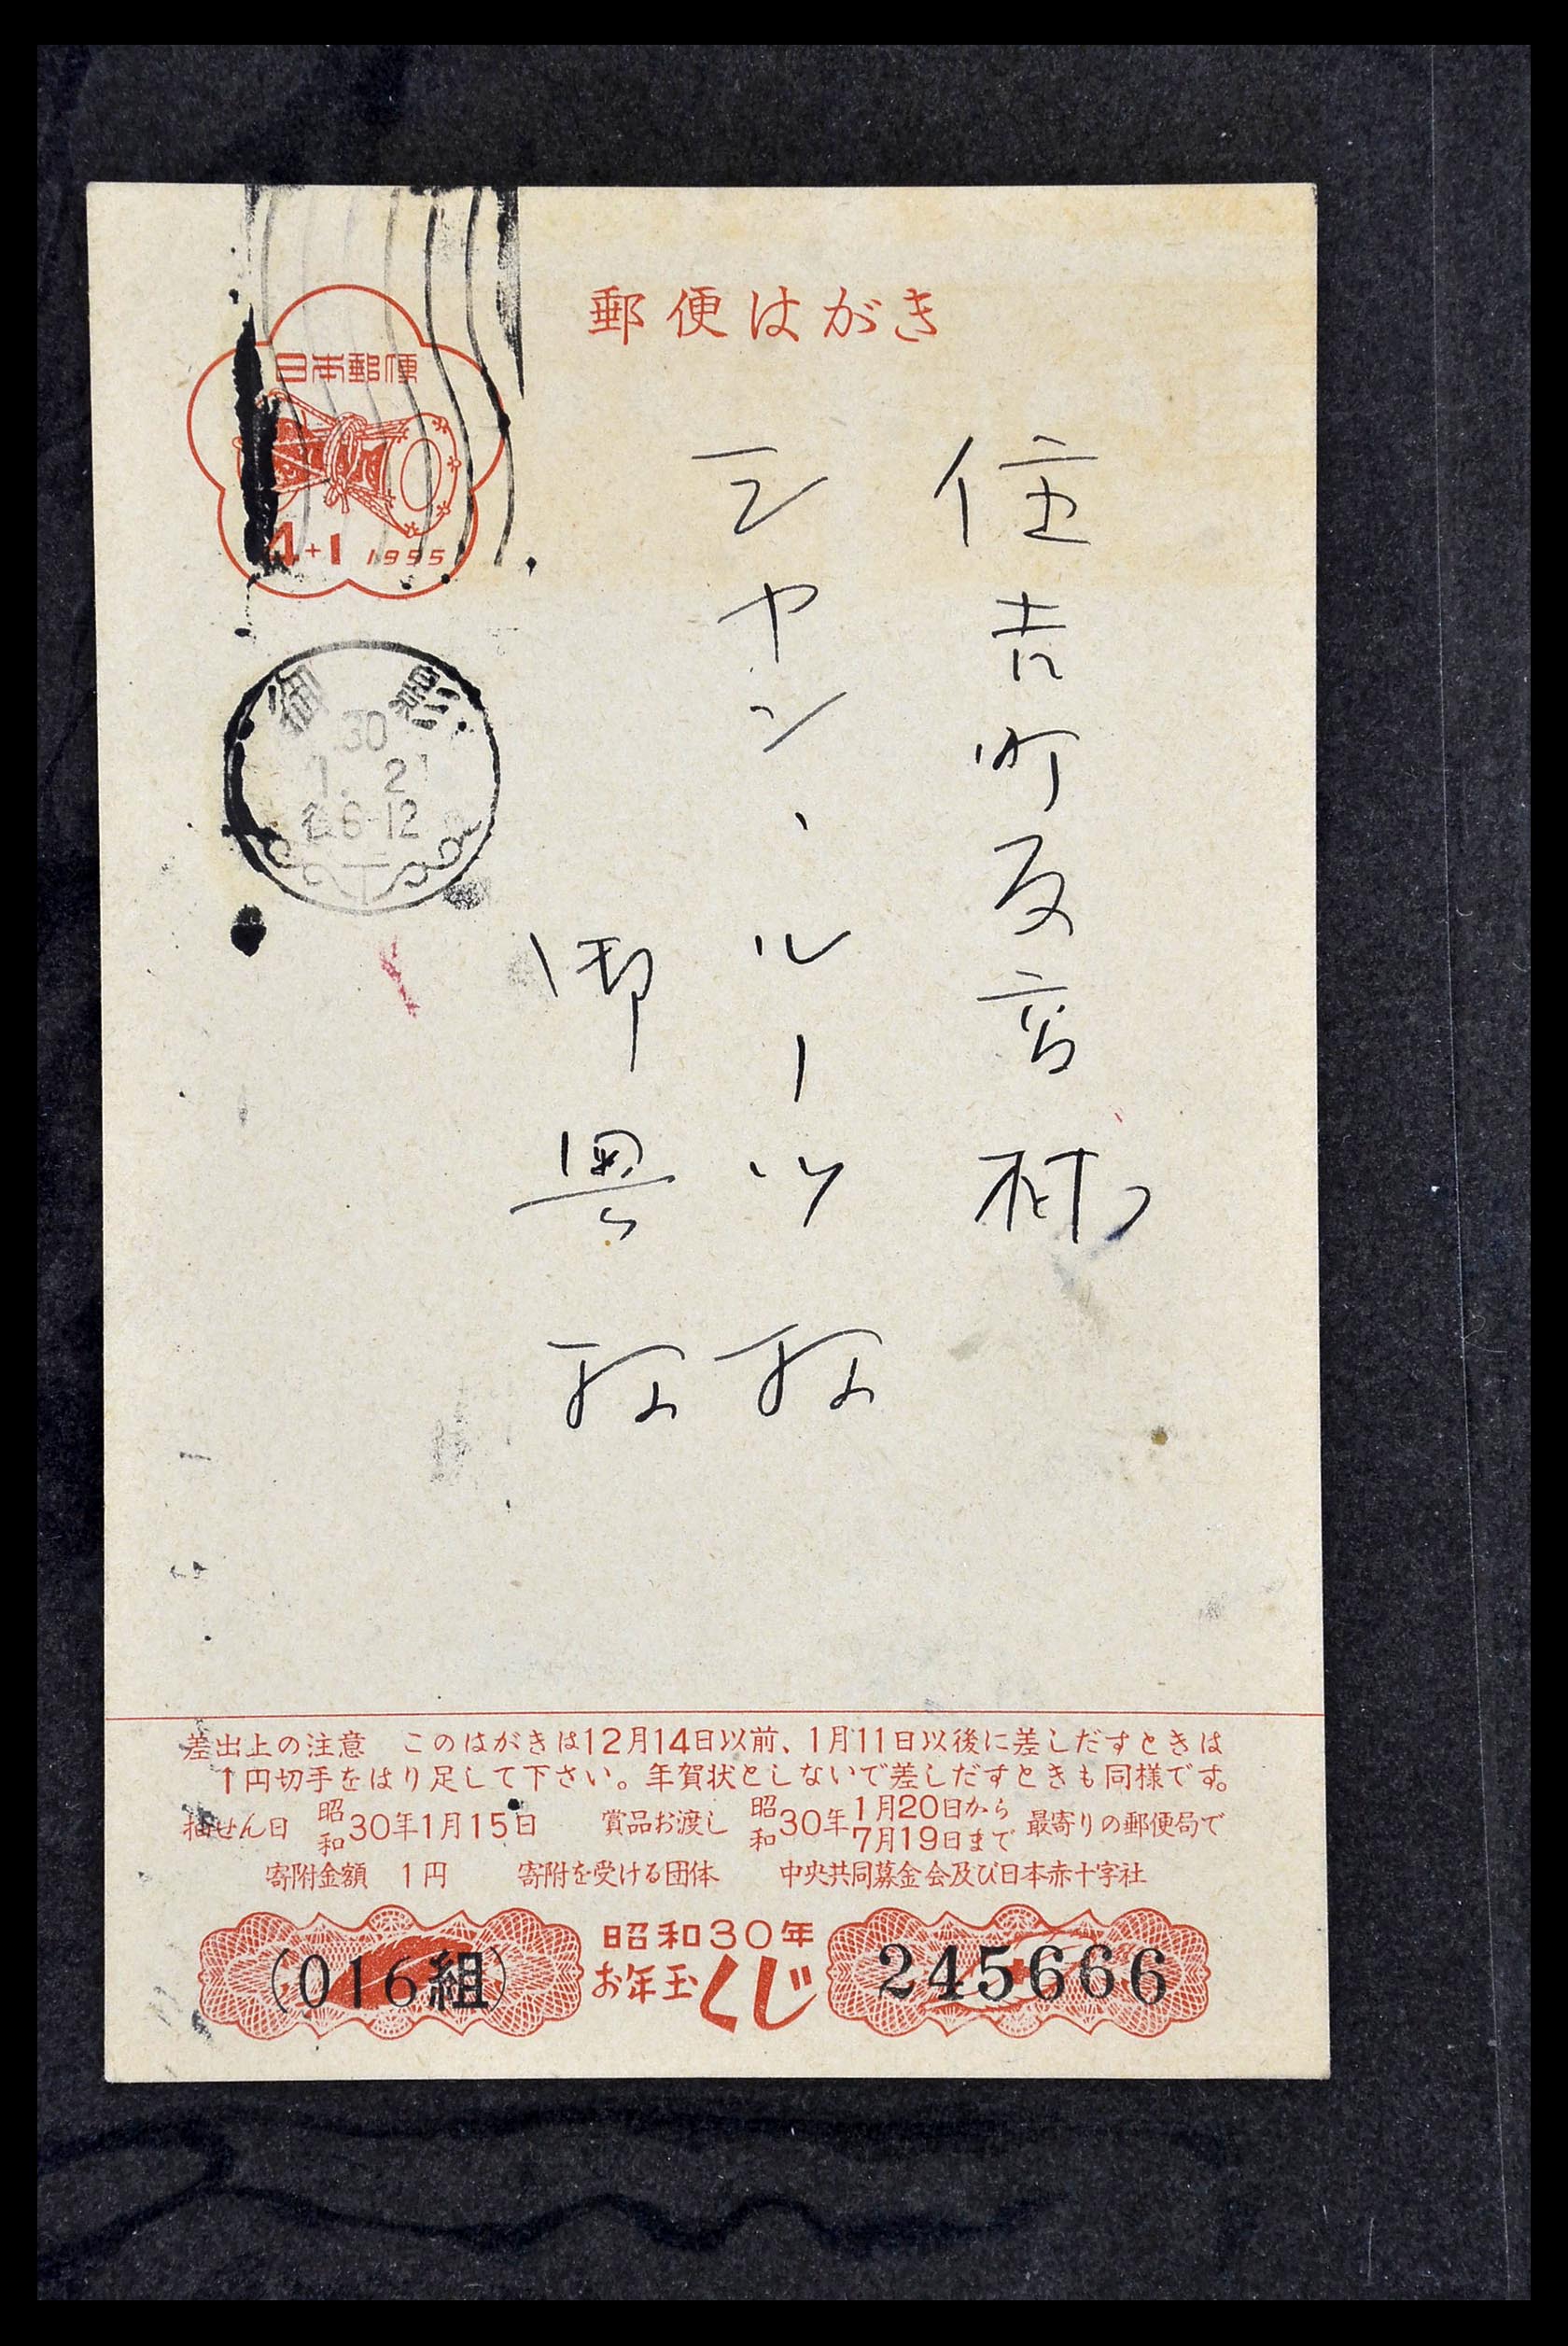 郵便はがき
日本郵便
4+1 1955
御影
30
1. 21
后6-12
住吉町反高林
シヤン、ルーツ
御奥
差出上の注意 このはがきは12月14日以前、1月11日以後に差しだすときは
1円切手をはり足して下さい。年賀状としないで差しだすときも同様です。
抽せん日 昭和30年1月15日 賞品お渡し 昭和30年1月20日から7月19日まで 最寄りの郵便局で
寄附金額 1円 寄附を受ける団体 中央共同募金会及び日本赤十字社
(016組) 昭和30年お年玉くじ 245666